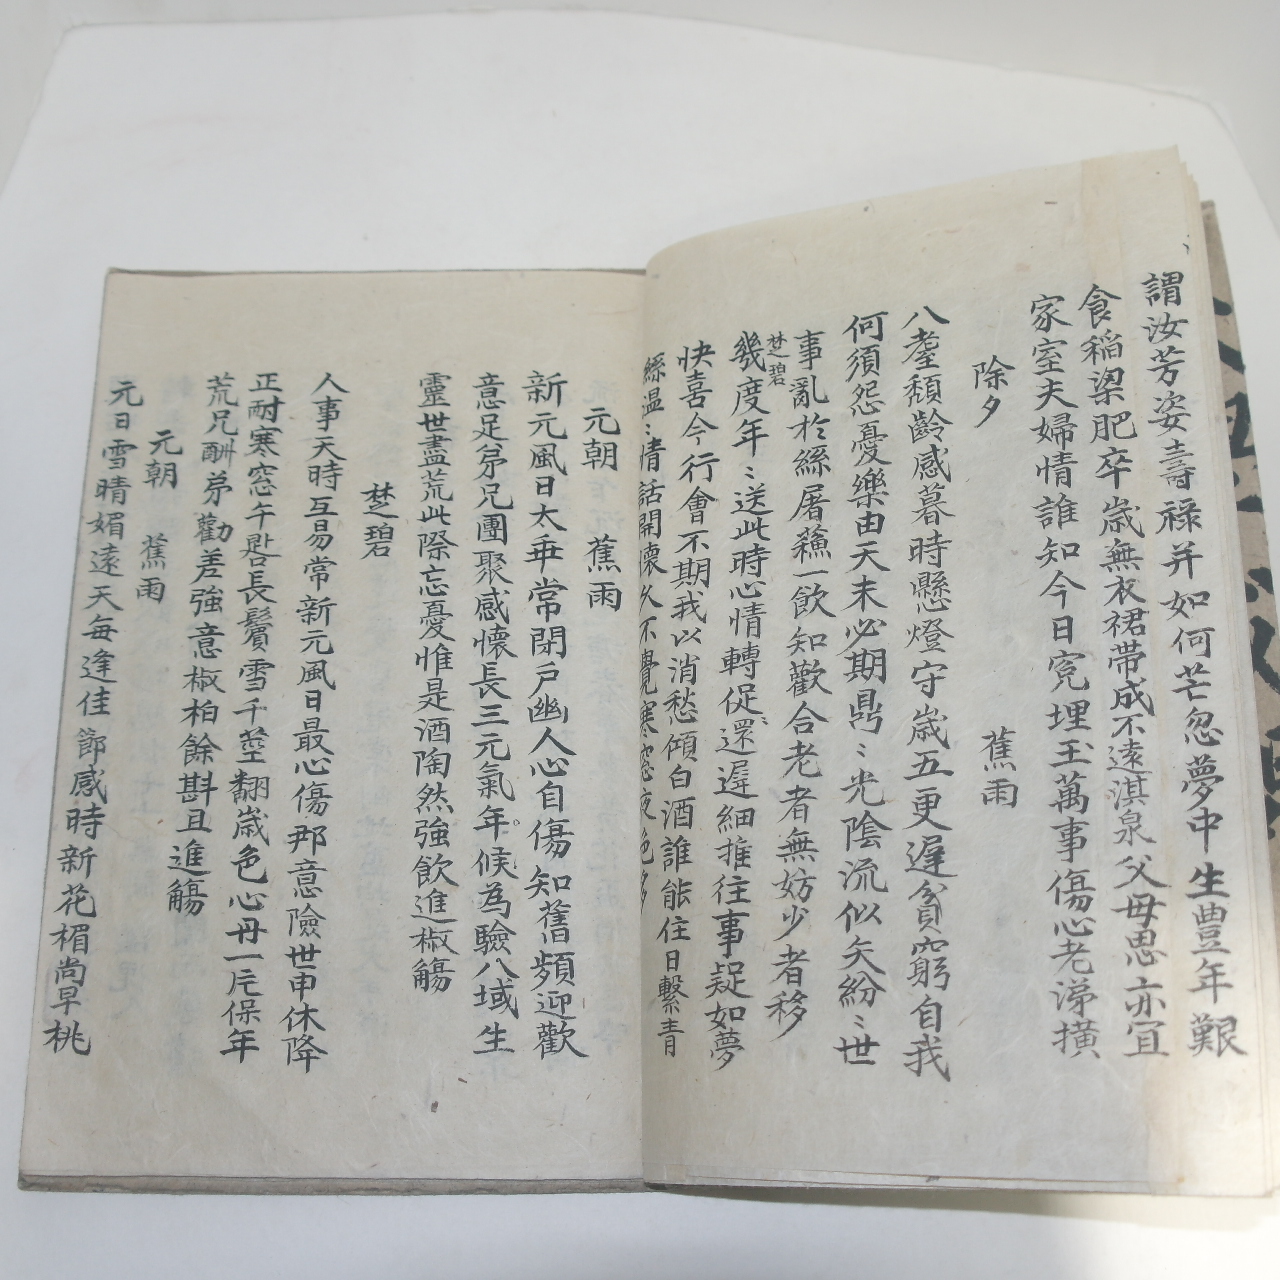 謂汝芳姿壽祿并如何芒忽夢中生豊年艱
食稲梁肥卒歲無衣裙帶成不遠淇泉父母思亦冝
家室夫婦情誰知今日寃埋玉萬事傷心老涕横
除夕 蕉雨
八耋頽齡感暮時懸燈守歲五更遲貧窮自我
何須怨憂樂由天未必期鼎〻光陰流似矢紛〻世
事亂於絲屠穌一飲知歡合老者無妨少者移
椘碧
幾度年〻送此時心情轉促還遲細推往事疑如夢
快喜今行會不期我以消愁傾白酒誰能住日繫青
絲温〻情話開懷久不覺寒窓夜色
元朝 蕉雨
新元風日太乖常閉戶幽人心自傷知舊頻迎歡
意足弟兄團聚感懷長三元氣年候為驗八域生
靈世盡荒此際忘憂惟是酒陶然強飲進椒觴
椘碧
人事天時互易常新元風日最心傷那意險世申休降
正耐寒窓午匙長鬢雪千莖翻歲色心丹一片保年
荒兄酬弟勸差強意椒柏餘斟且進觴
元朝 蕉雨
元日雪晴媚遠天每逢佳節感時新花楣尚早桃